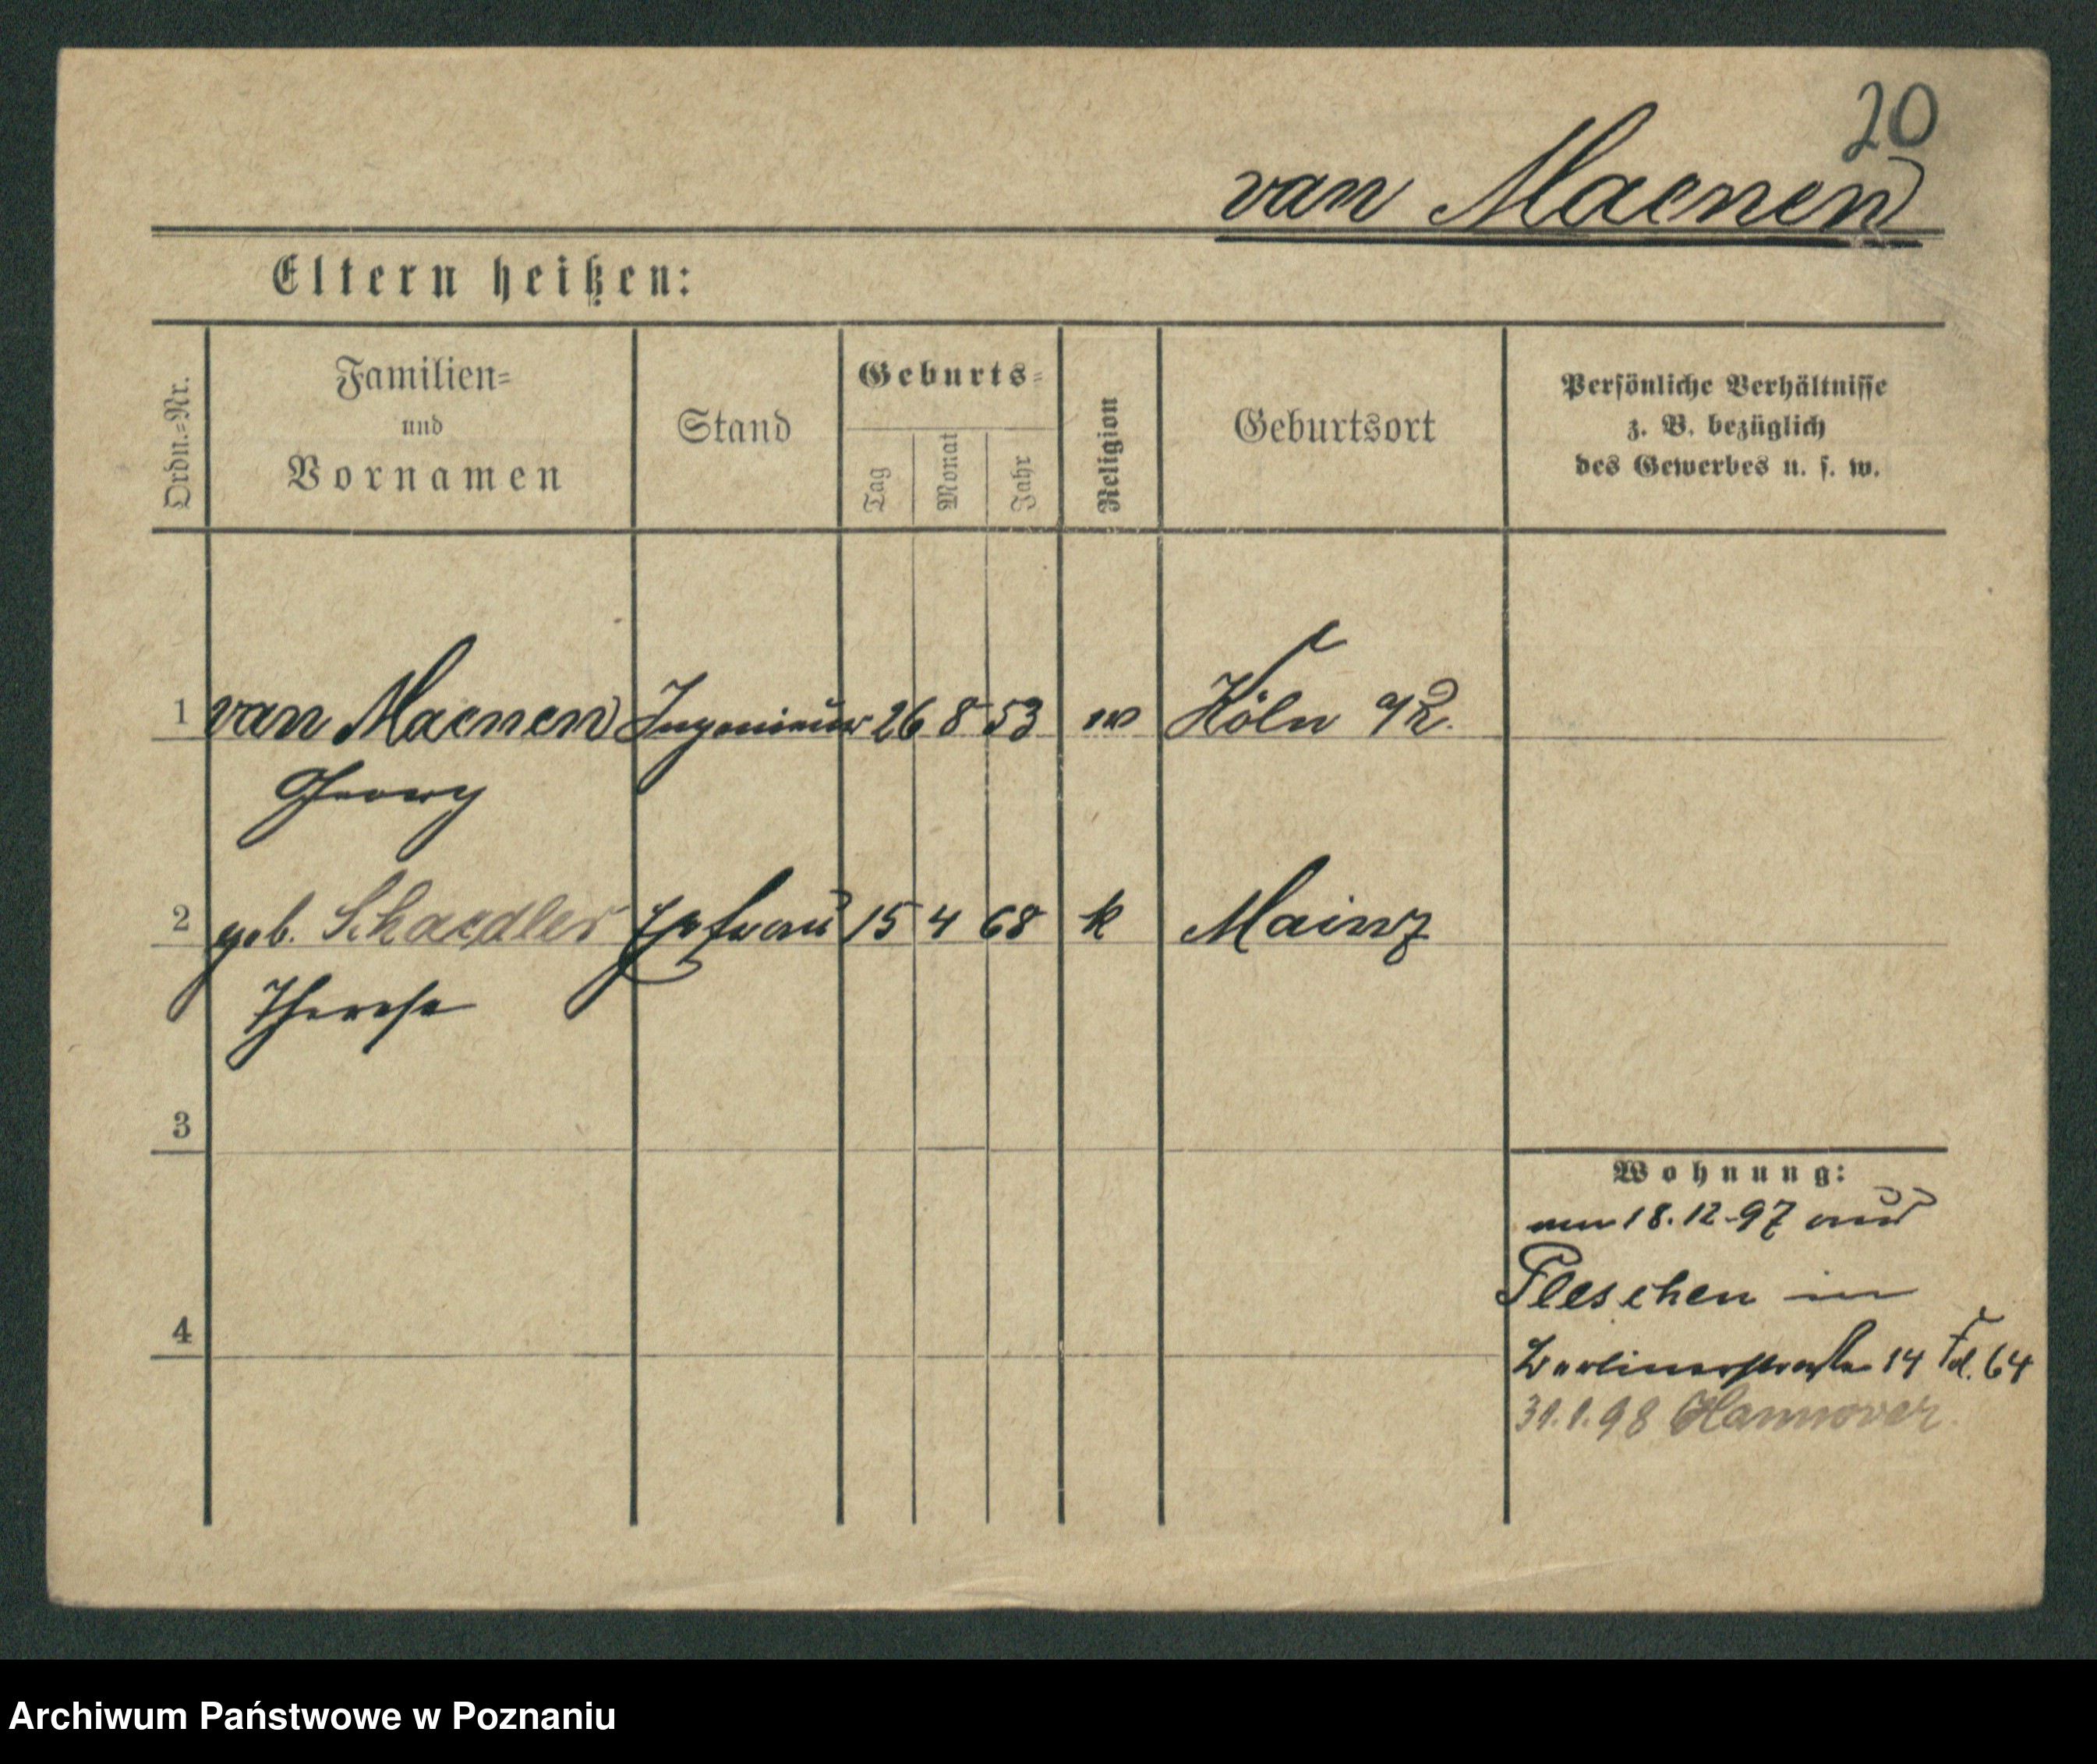 20
van Maenen
Eltern heißen:
Ordn.=Nr.
Familien=
und
Vornamen
Stand
Geburts=
Tag
Monat
Jahr
Religion
Geburtsort
Persönliche Verhältnisse
z. B. bezüglich
des Gewerbes u. s. w.
1 van Maenen Ingenieur 26 8 53 Köln
Georg
2 geb. Schaedler Ehefrau 15 4 68 k Mainz
Therese
3
Wohnung:
am 18.12.97 aus
Pleschen in
4
Berlinerstraße 14 64
31.1.98 Hannover.
Archiwum Państwowe w Poznaniu